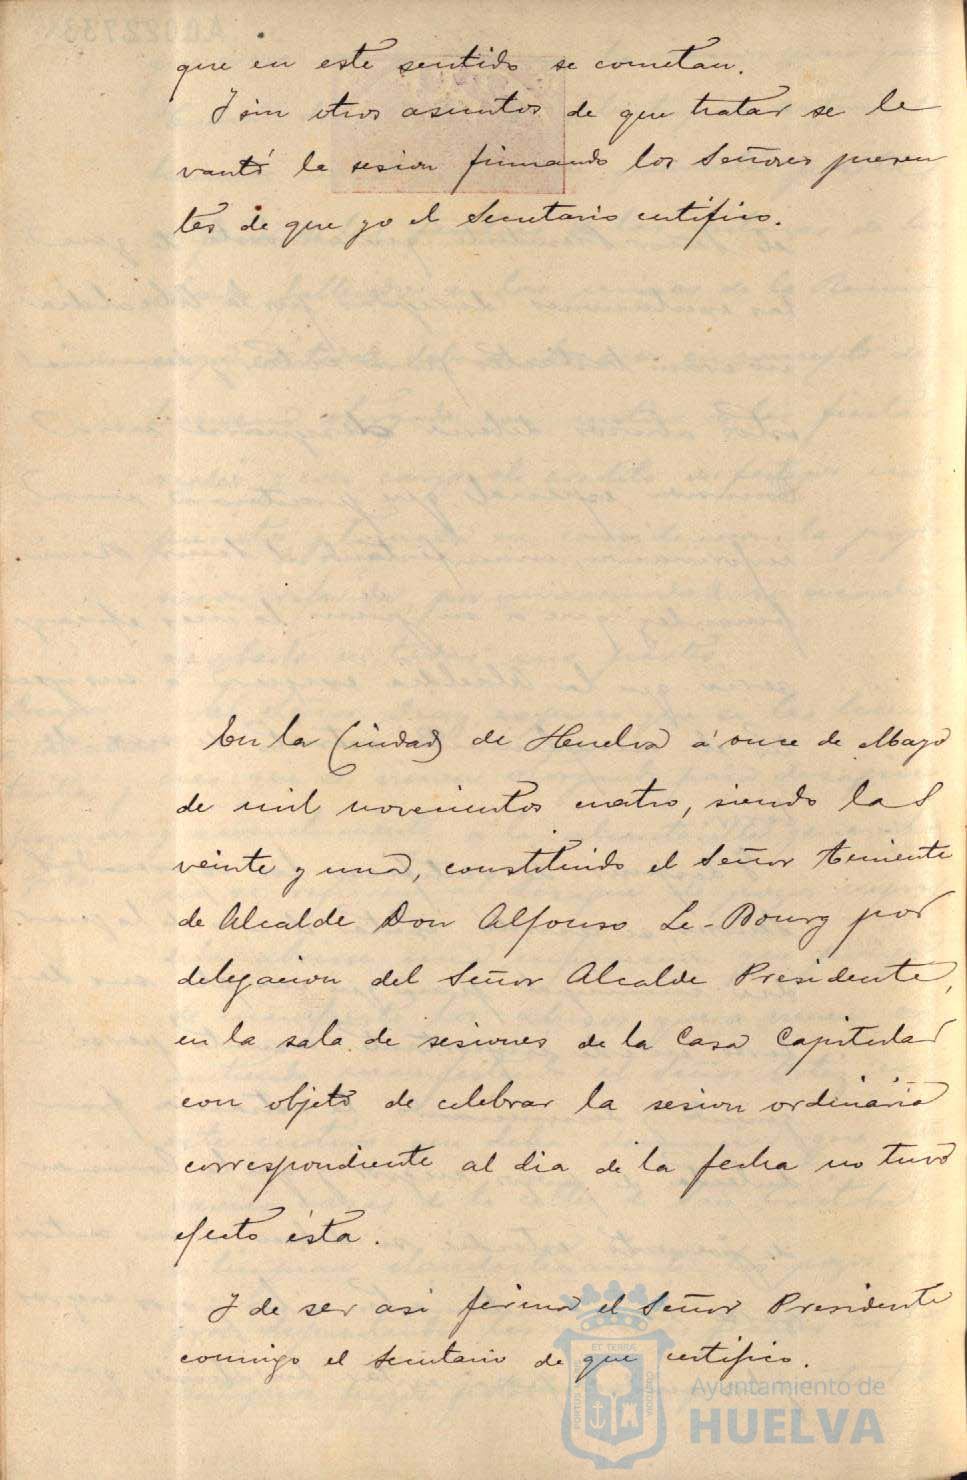 que en este sentido se cometan.
Y sin otros asuntos de que tratar se le
vantó la sesion firmando los Señores presen
tes de que yo el Secretario certifico.
En la Ciudad de Huelva á once de Mayo
de mil novecientos cuatro, siendo las
veinte y una, constituido el Señor teniente
de Alcalde Don Alfonso Le-Bourg por
delegacion del Señor Alcalde Presidente,
en la sala de sesiones de la Casa Capitular
con objeto de celebrar la sesion ordinaria
correspondiente al dia de la fecha no tuvo
efecto ésta.
Y de ser asi firma el Señor Presidente
conmigo el Secretario de que certifico.
Ayuntamiento de
HUELVA